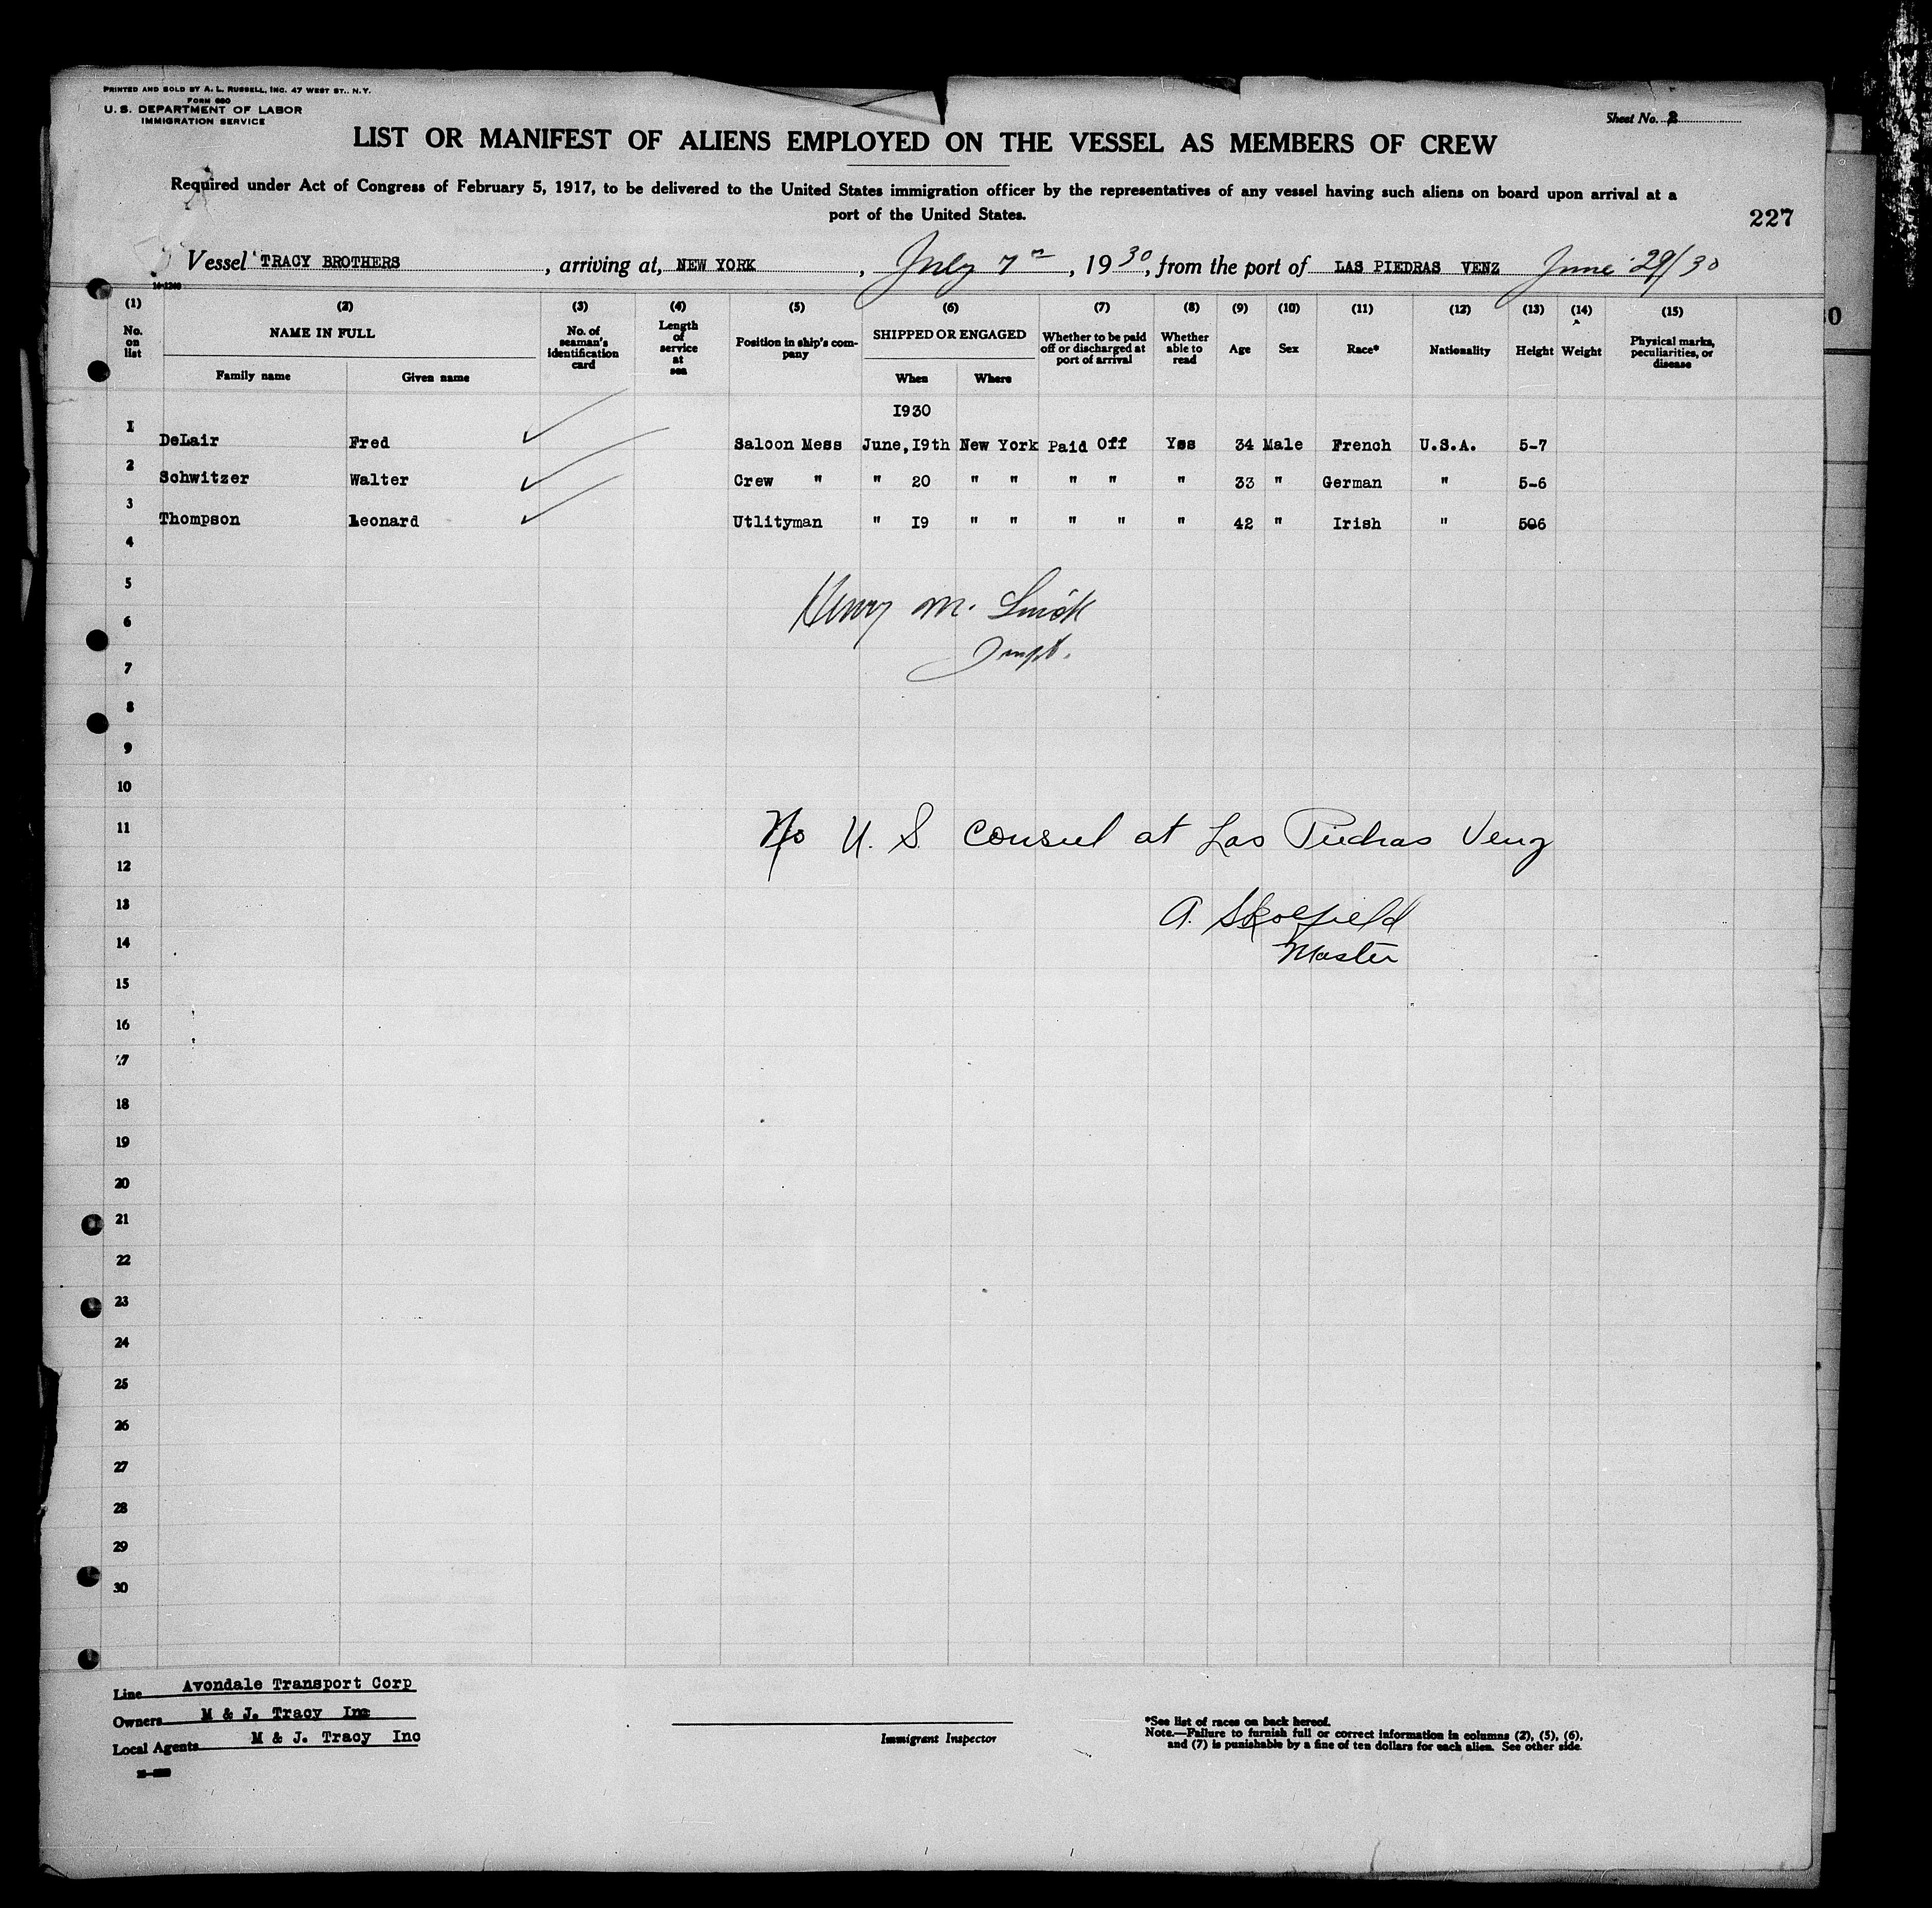 PRINTED AND SOLD BY A. L. RUSSELL, INC. 47 WEST ST., N.Y.
FORM 680
U. S. DEPARTMENT OF LABOR
IMMIGRATION SERVICE
Sheet No. 2
LIST OR MANIFEST OF ALIENS EMPLOYED ON THE VESSEL AS MEMBERS OF CREW
Required under Act of Congress of February 5, 1917, to be delivered to the United States immigration officer by the representatives of any vessel having such aliens on board upon arrival at a
port of the United States.
227
Vessel TRACY BROTHERS, arriving at, NEW YORK, July 7th, 1930, from the port of LAS PIEDRAS VENZ June 29/30
(1) (2) (3) (4) (5) (6) (7) (8) (9) (10) (11) (12) (13) (14) (15)
No. on list NAME IN FULL No. of seaman's identification card Length of service at sea Position in ship's company SHIPPED OR ENGAGED Whether to be paid off or discharged at port of arrival Whether able to read Age Sex Race* Nationality Height Weight Physical marks, peculiarities, or disease
Family name Given name When Where
1930
1 DeLair Fred Saloon Mess June,19th New York Paid Off Yes 34 Male French U.S.A. 5-7
2 Schwitzer Walter Crew " " 20 " " " " " 33 " German " 5-6
3 Thompson Leonard Utlityman " 19 " " " " " 42 " Irish " 506
4
5
6
Henry M.
7
8
9
10
11 No U. S. Consul at Las Piedras Venz
12
13 A. Skolfield
14 Master
15
16
17
18
19
20
21
22
23
24
25
26
27
28
29
30
Line Avondale Transport Corp
Owners M & J. Tracy Inc
Local Agents M & J. Tracy Inc
Immigrant Inspector
*See list of races on back hereof.
Note.—Failure to furnish full or correct information in columns (2), (5), (6),
and (7) is punishable by a fine of ten dollars for each alien. See other side.